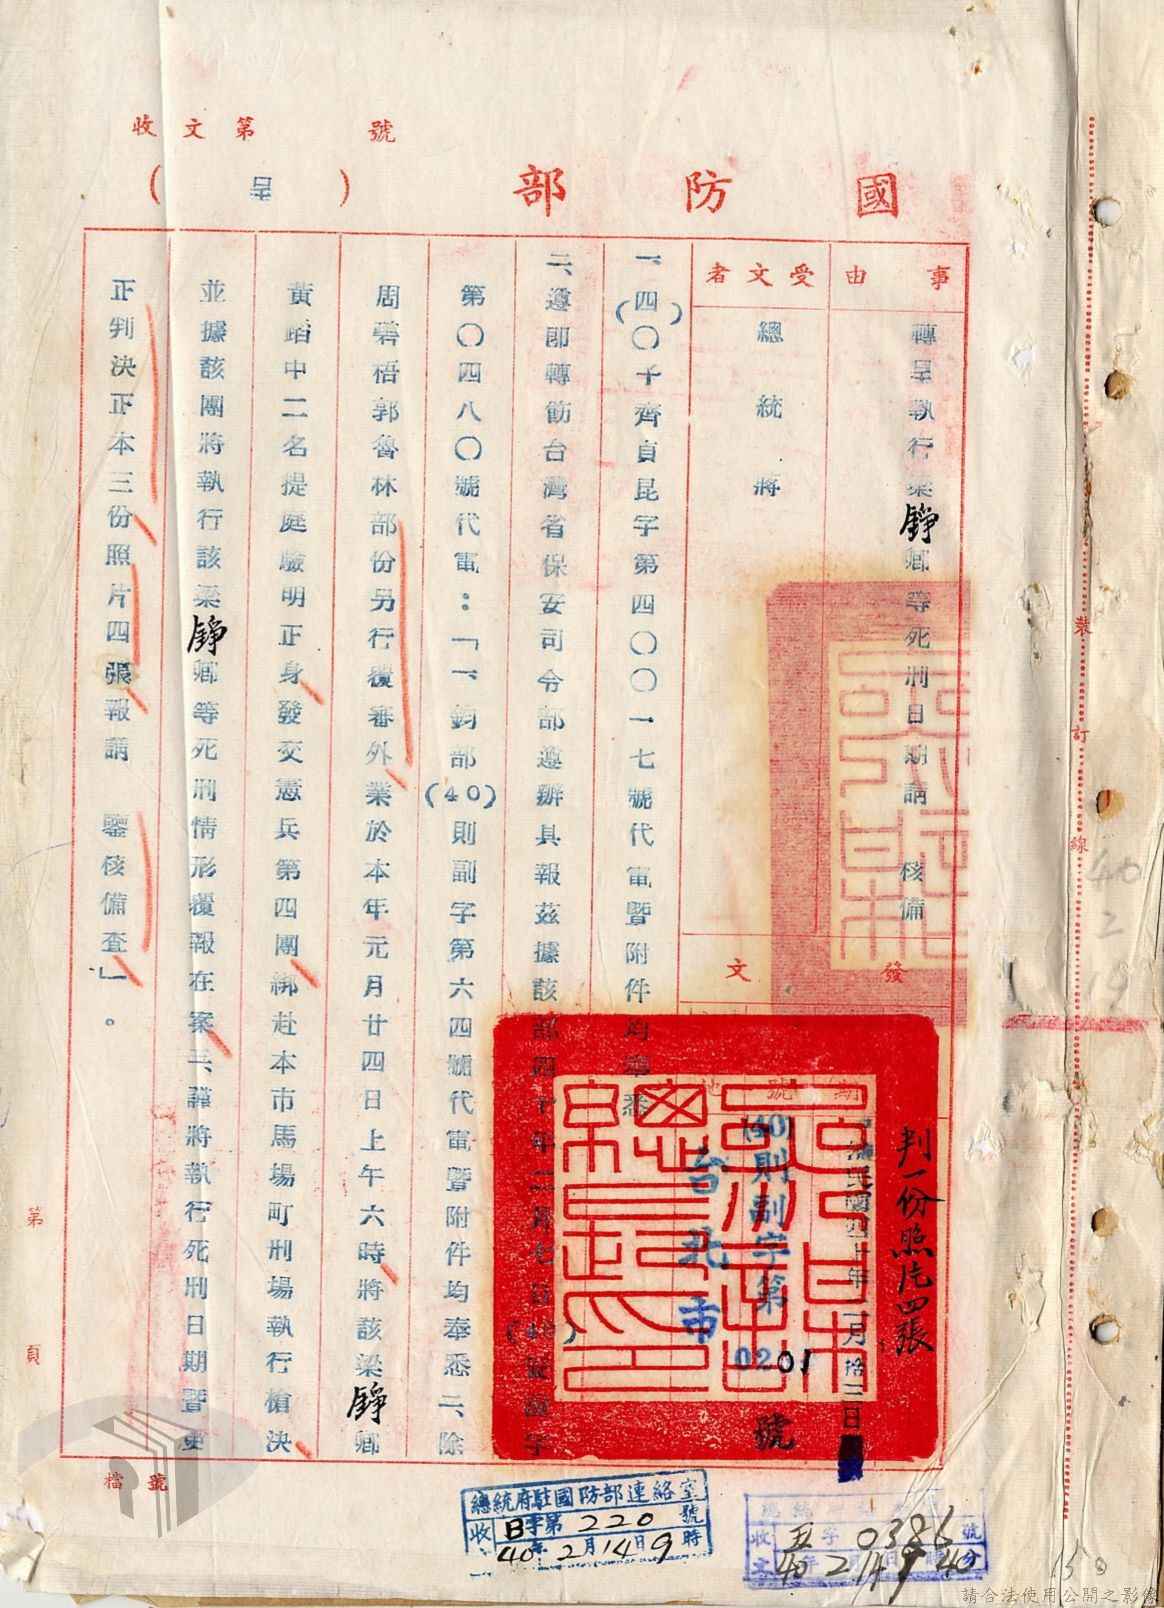 收文第 號
國防部（呈）
事由
轉呈執行梁錚卿等死刑日期請 核備
受文者
總統 蔣
發文
中華民國四十年二月拾三日
(40)則副字第0201號
台北市
判一份照片四張
一、(四〇)子齊貞昆字第四〇〇一七號代電暨附件均奉悉
二、遵即轉飭台灣省保安司令部遵辦具報茲據該部四十年二月七日(40)安潔字
第〇四八〇號代電：「一、鈞部(40)則副字第六四號代電暨附件均奉悉二、除
周碧梧郭魯林部份另行覆審外業於本年元月廿四日上午六時將該梁錚卿
黃蹈中二名提庭驗明正身發交憲兵第四團綁赴本市馬場町刑場執行槍決
並據該團將執行該梁錚卿等死刑情形覆報在案三、謹將執行死刑日期暨更
正判決正本三份照片四張報請 鑒核備查」。
裝訂線
40
2
19
第 頁
檔號
總統府駐國防部連絡室
收 B字第220號
40年2月14日9時
收文 五字0386號
40年2月14日9時40分
150
請合法使用公開之影像